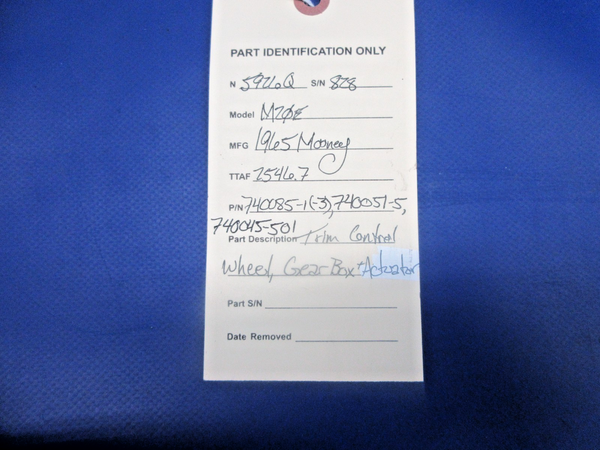 PART IDENTIFICATION ONLY
N 5976Q S/N 828
Model M20E
MFG 1965 Mooney
TTAF 2546.7
P/N 740085-1(-3), 740051-5,
740045-501
Part Description Trim Control
Wheel, Gear Box + Actuator
Part S/N
Date Removed